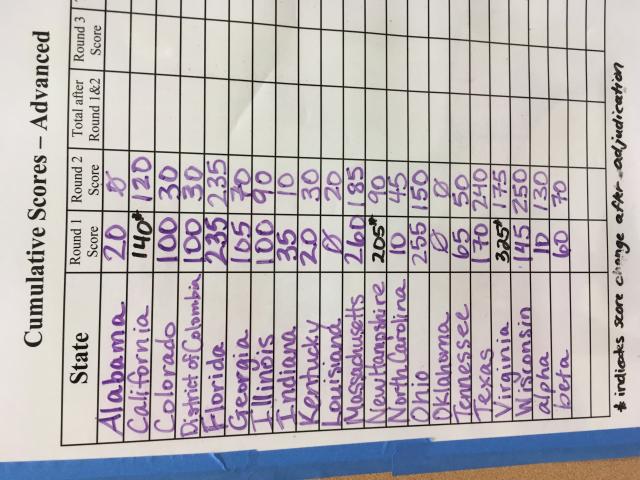 Cumulative Scores – Advanced
State Round 1 Score Round 2 Score Total after Round 1&2 Round 3 Score
Alabama 20 0
California 140* 120
Colorado 100 30
District of Colombia 100 30
Florida 235 235
Georgia 105 70
Illinois 100 90
Indiana 35 10
Kentucky 20 30
Louisiana 0 20
Massachusetts 260 185
New Hampshire 205* 90
North Carolina 10 45
Ohio 255 150
Oklahoma 0 0
Tennessee 65 50
Texas 170 240
Virginia 325* 175
Wisconsin 145 250
alpha 10 130
beta 60 70
* indicates score change after adjudication